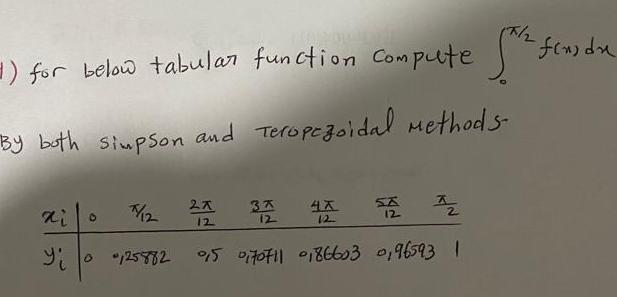 1) for below tabular function compute ∫₀^π/2 f(x) dx
By both simpson and Teropezoidal Methods-
xi | 0 π/12 2π/12 3π/12 4π/12 5π/12 π/2
yi | 0 0,25882 0,5 0,70711 0,86603 0,96593 1